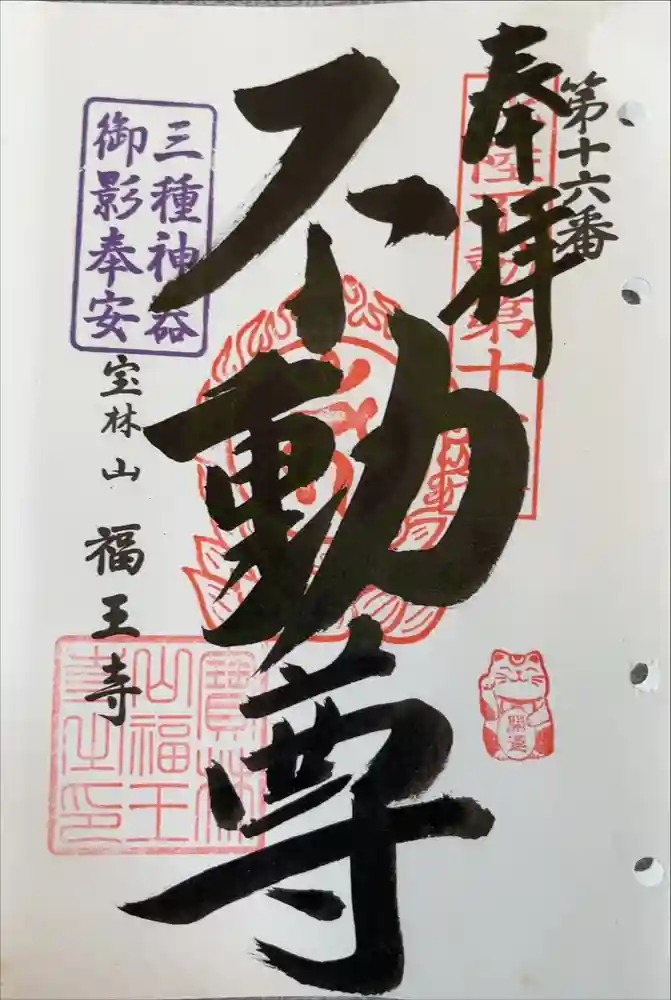 第十六番
奉拝
不動尊
三種神器
御影奉安
宝林山 福王寺
寶林
山福王
寺之印
開運